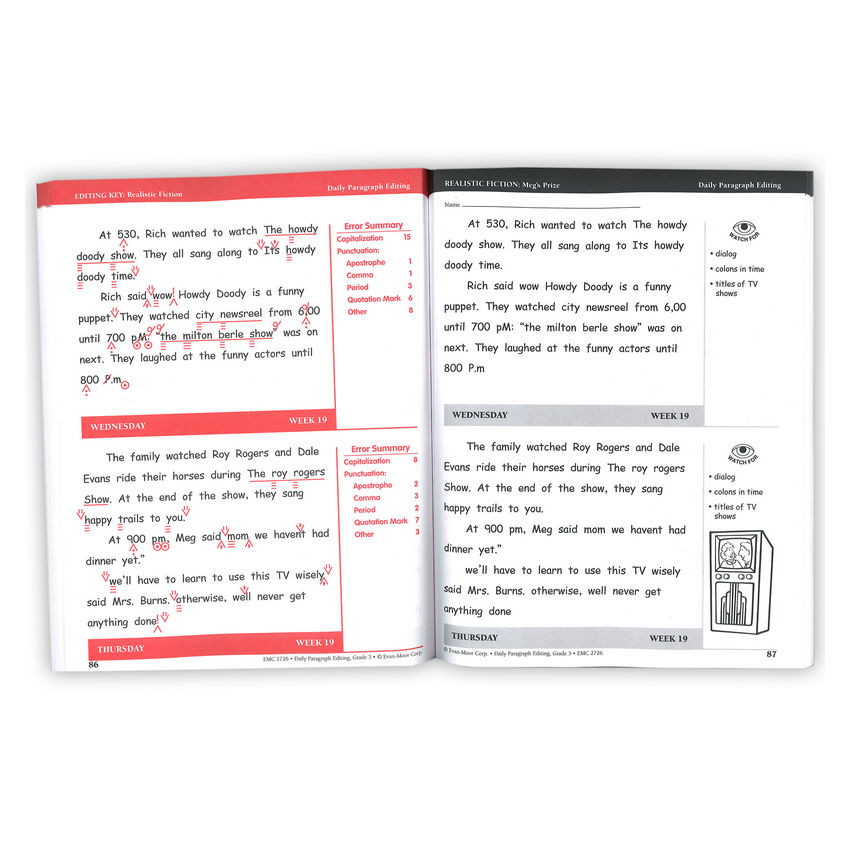 EDITING KEY: Realistic Fiction
Daily Paragraph Editing
At 530, Rich wanted to watch The howdy
doody show. They all sang along to Its howdy
doody time.
Rich said wow! Howdy Doody is a funny
puppet. They watched city newsreel from 6,00
until 700 pM: “the milton berle show” was on
next. They laughed at the funny actors until
800 P.m
Error Summary
Capitalization 15
Punctuation:
Apostrophe 1
Comma 1
Period 3
Quotation Mark 6
Other 8
WEDNESDAY
WEEK 19
The family watched Roy Rogers and Dale
Evans ride their horses during The roy rogers
Show. At the end of the show, they sang
happy trails to you.
At 900 pm, Meg said mom we havent had
dinner yet.”
we’ll have to learn to use this TV wisely
said Mrs. Burns. otherwise, well never get
anything done!
Error Summary
Capitalization 8
Punctuation:
Apostrophe 2
Comma 3
Period 2
Quotation Mark 7
Other 3
THURSDAY
WEEK 19
86
EMC 2726 • Daily Paragraph Editing, Grade 3 • © Evan-Moor Corp.
REALISTIC FICTION: Meg’s Prize
Daily Paragraph Editing
Name
At 530, Rich wanted to watch The howdy
doody show. They all sang along to Its howdy
doody time.
Rich said wow Howdy Doody is a funny
puppet. They watched city newsreel from 6,00
until 700 pM: “the milton berle show” was on
next. They laughed at the funny actors until
800 P.m
WATCH FOR
• dialog
• colons in time
• titles of TV
shows
WEDNESDAY
WEEK 19
The family watched Roy Rogers and Dale
Evans ride their horses during The roy rogers
Show. At the end of the show, they sang
happy trails to you.
At 900 pm, Meg said mom we havent had
dinner yet.”
we’ll have to learn to use this TV wisely
said Mrs. Burns. otherwise, well never get
anything done
WATCH FOR
• dialog
• colons in time
• titles of TV
shows
THURSDAY
WEEK 19
© Evan-Moor Corp. • Daily Paragraph Editing, Grade 3 • EMC 2726
87